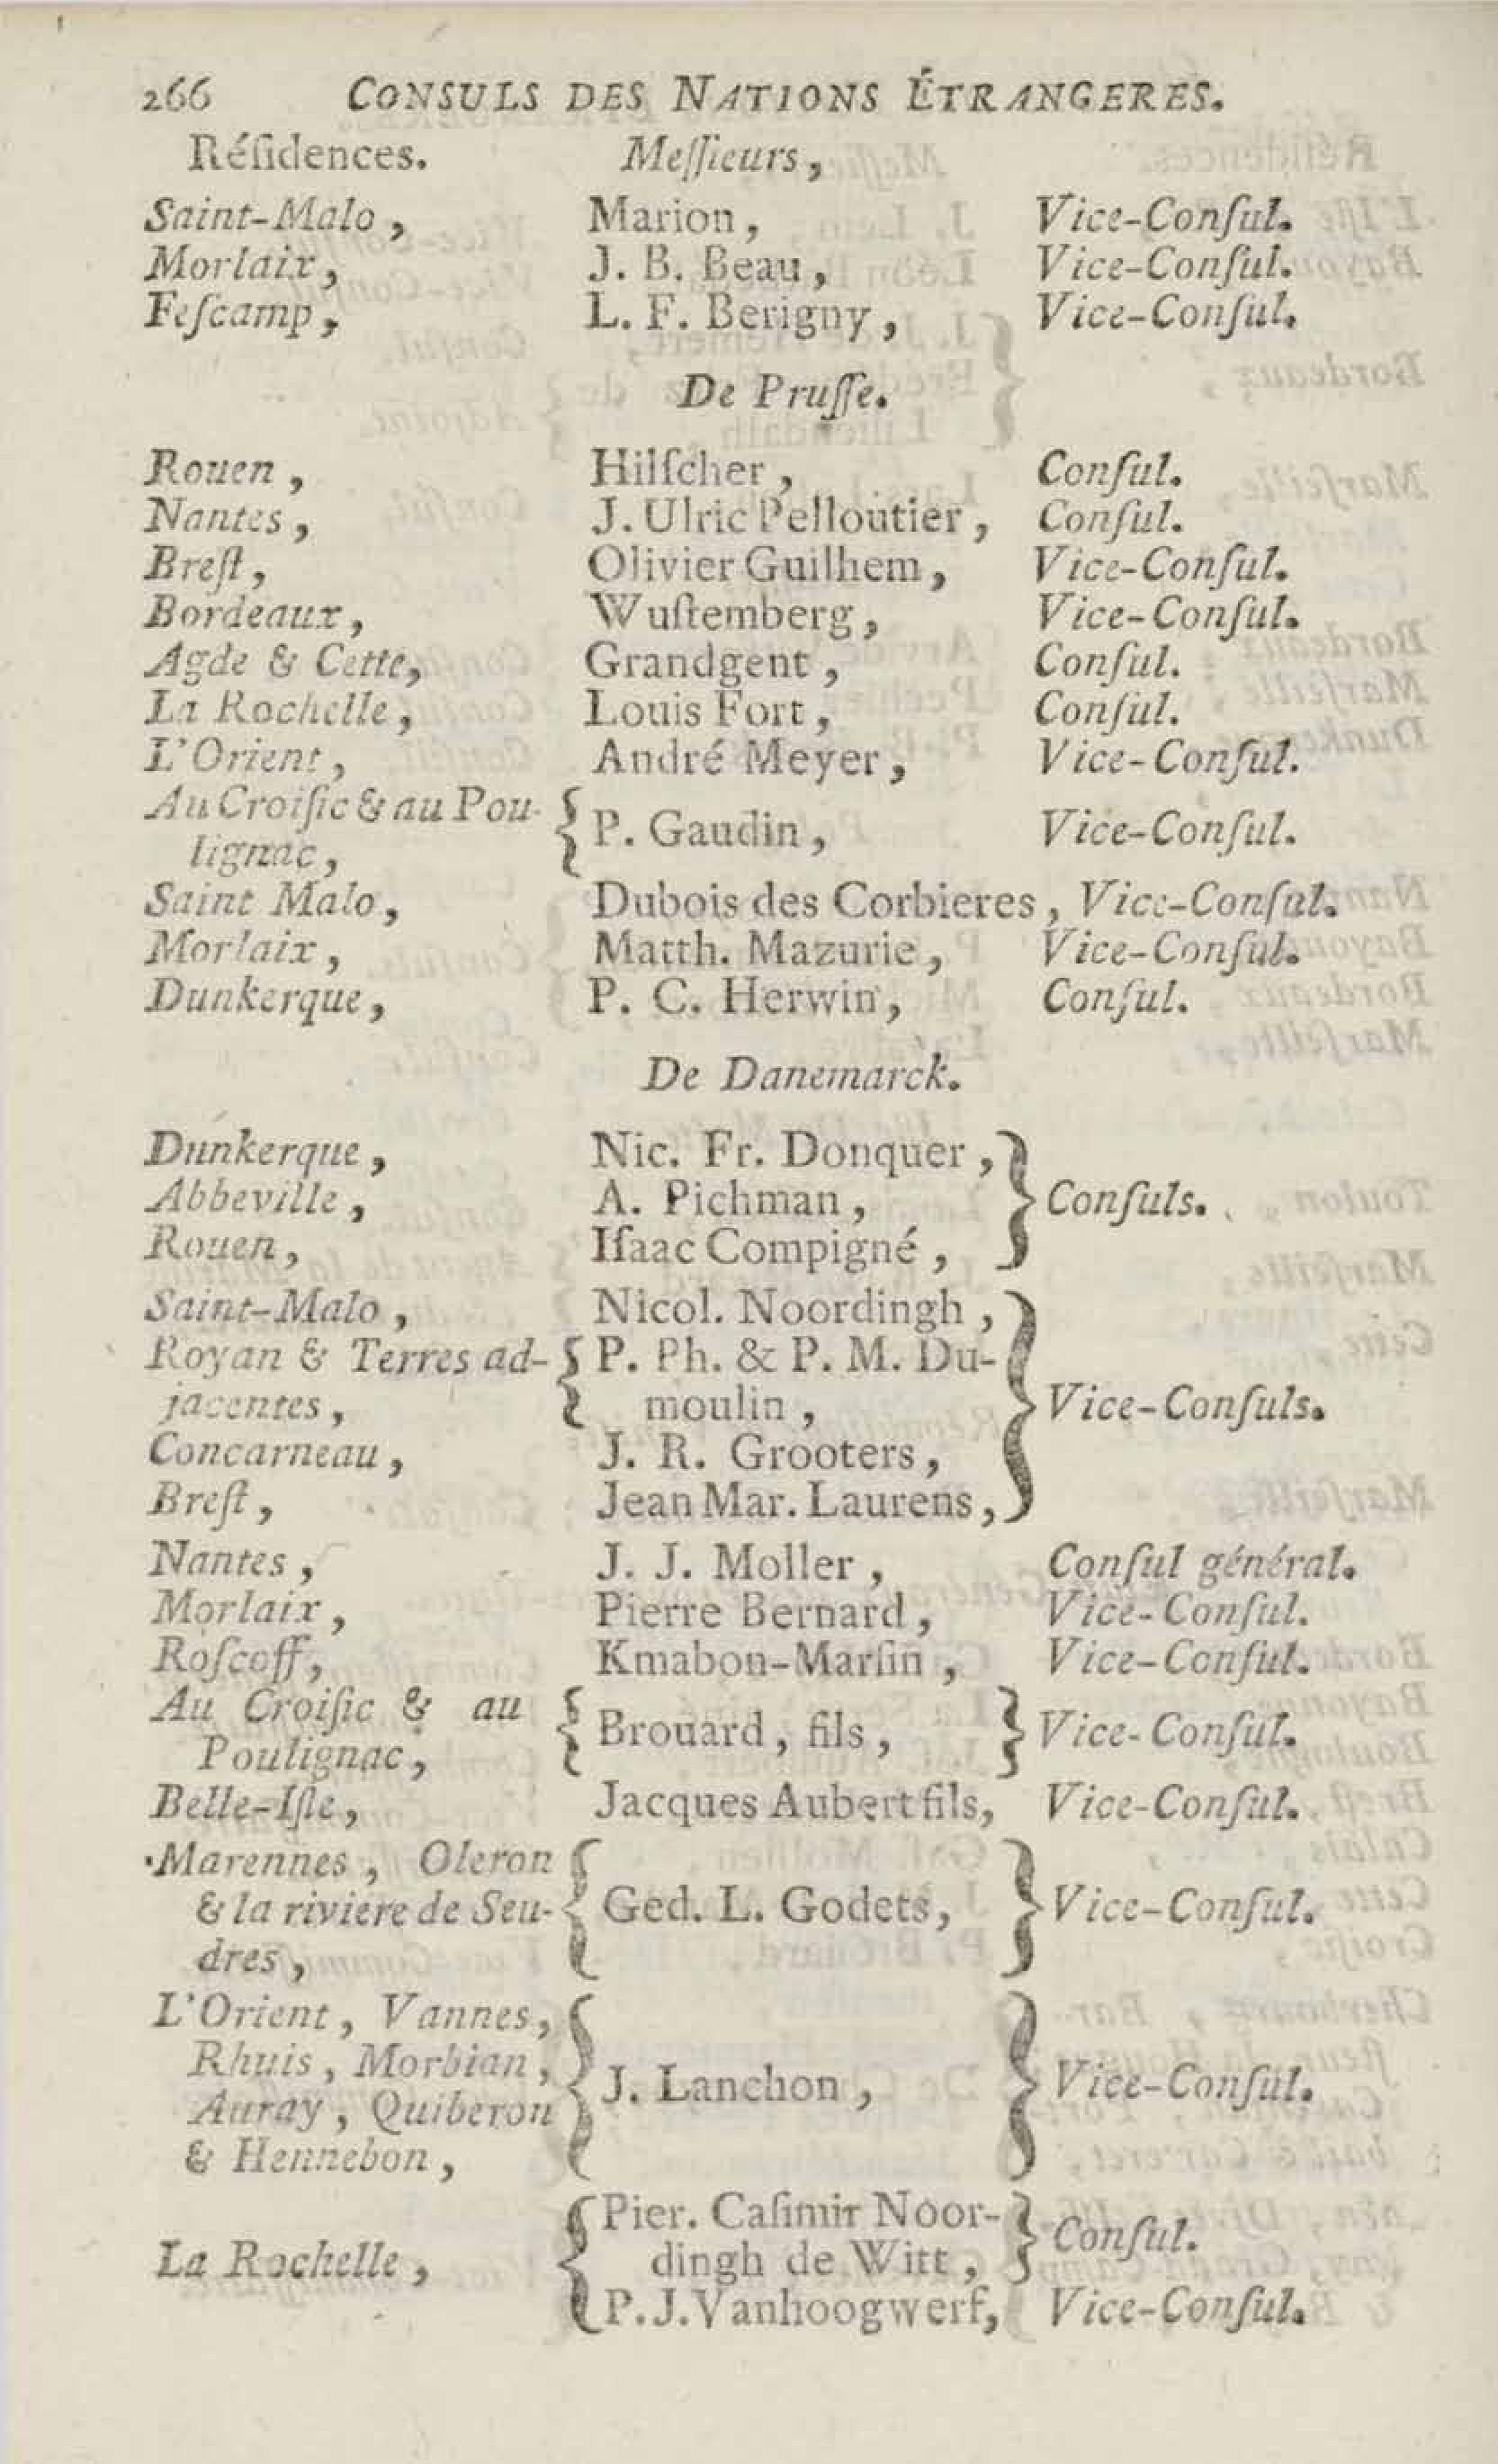 266 CONSULS DES NATIONS ÉTRANGERES.
Réſidences. Meſſieurs,
Saint-Malo, Marion, Vice-Conſul.
Morlaix, J. B. Beau, Vice-Conſul.
Feſcamp, L. F. Berigny, Vice-Conſul.
De Pruſſe.
Rouen, Hilſcher, Conſul.
Nantes, J. Ulric Pelloutier, Conſul.
Breſt, Olivier Guilhem, Vice-Conſul.
Bordeaux, Wuſtemberg, Vice-Conſul.
Agde & Cette, Grandgent, Conſul.
La Rochelle, Louis Fort, Conſul.
L'Orient, André Meyer, Vice-Conſul.
Au Croiſic & au Pou-
lignac, P. Gaudin, Vice-Conſul.
Saint Malo, Dubois des Corbieres, Vice-Conſul.
Morlaix, Matth. Mazurie, Vice-Conſul.
Dunkerque, P. C. Herwin, Conſul.
De Danemarck.
Dunkerque, Nic. Fr. Donquer,
Abbeville, A. Pichman, Conſuls.
Rouen, Iſaac Compigné,
Saint-Malo, Nicol. Noordingh,
Royan & Terres ad- P. Ph. & P. M. Du-
jacentes, moulin, Vice-Conſuls.
Concarneau, J. R. Grooters,
Breſt, Jean Mar. Laurens,
Nantes, J. J. Moller, Conſul général.
Morlaix, Pierre Bernard, Vice-Conſul.
Roſcoff, Kmabon-Marſin, Vice-Conſul.
Au Croiſic & au
Poulignac, Brouard, fils, Vice-Conſul.
Belle-Iſle, Jacques Aubert fils, Vice-Conſul.
Marennes, Oleron
& la riviere de Seu- Ged. L. Godets, Vice-Conſul.
dres,
L'Orient, Vannes,
Rhuis, Morbian, J. Lanchon, Vice-Conſul.
Auray, Quiberon
& Hennebon,
Pier. Caſimir Noor- Conſul.
La Rochelle, dingh de Witt,
P. J. Vanhoogwerf, Vice-Conſul.